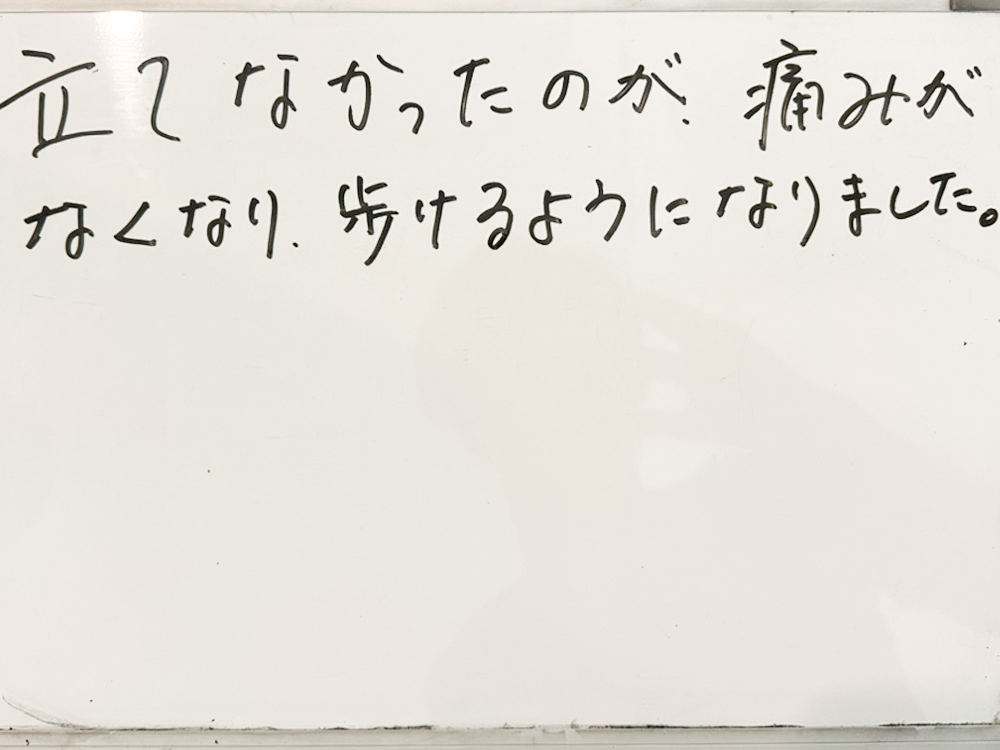 立てなかったのが、痛みが
なくなり、歩けるようになりました。